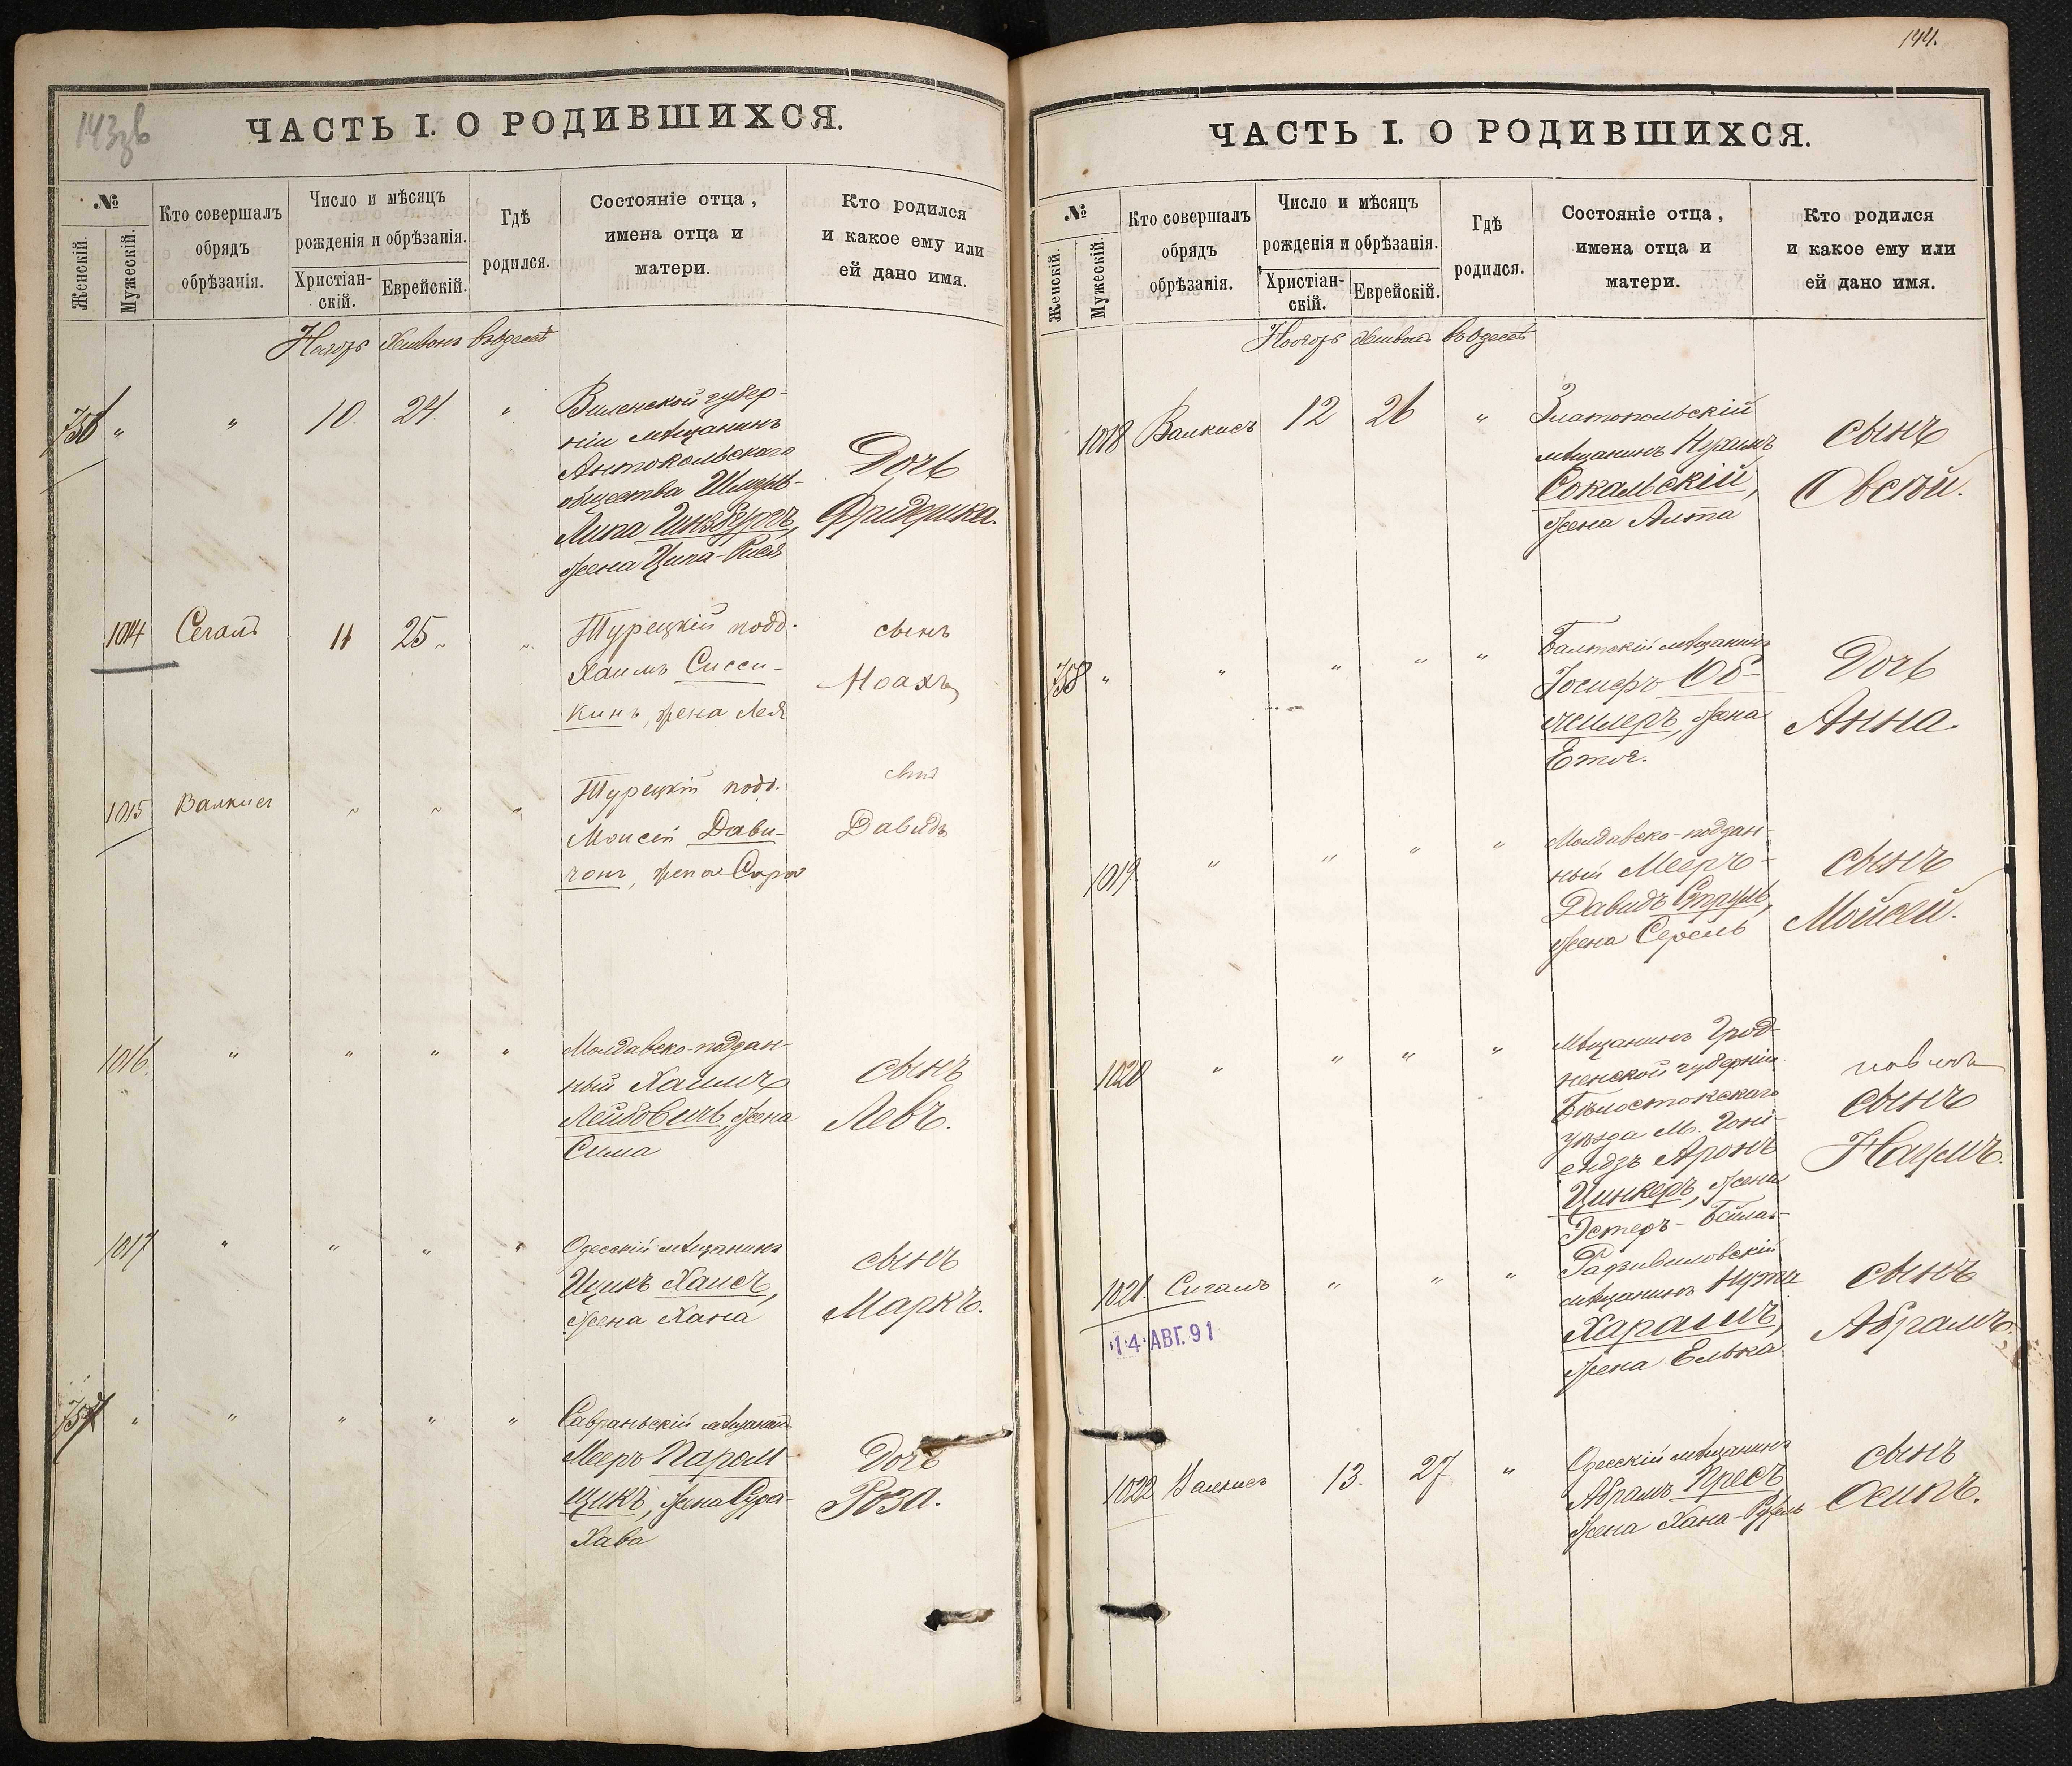 143зв
ЧАСТЬ I. О РОДИВШИХСЯ.
№
Женскій.
Мужескій.
Кто совершалъ
обрядъ
обрѣзанія.
Число и мѣсяцъ
рожденія и обрѣзанія.
Христіан-
скій.
Еврейскій.
Гдѣ
родился.
Состояніе отца,
имена отца и
матери.
Кто родился
и какое ему или
ей дано имя.
Ноябрь Хешвонъ въ Одессѣ
756 " " 10. 24. "
Виленской губер-
ніи мѣщанинъ
Антокольскаго
общества
Липа Гинзбергъ,
жена Ципа-
Дочь
Фридерика.
1014 Сегалъ 11 25 "
Турецкій подд.
Хаимъ Сисси-
кинъ, жена Лея
сынъ
Ноахъ
1015 Валкисъ " " "
Турецкій подд.
Моисей Дави-
чонъ, жена Сара
сынъ
Давидъ
1016. " " " "
Молдавско-поддан-
ный Хаимъ
Лейбовичъ, жена
Сима
сынъ
Левъ.
1017 " " " "
Одесскій мѣщанинъ
Ицикъ Хаисъ,
жена Хана
сынъ
Маркъ.
757 " " " " "
Савраньскій мѣщанинъ
Мееръ Паром-
щикъ, жена Сура-
Хава
Дочь
Роза.
144.
ЧАСТЬ I. О РОДИВШИХСЯ.
№
Женскій.
Мужескій.
Кто совершалъ
обрядъ
обрѣзанія.
Число и мѣсяцъ
рожденія и обрѣзанія.
Христіан-
скій.
Еврейскій.
Гдѣ
родился.
Состояніе отца,
имена отца и
матери.
Кто родился
и какое ему или
ей дано имя.
Ноябрь Хешвонъ въ Одессѣ
1018 Валкисъ 12 26 "
Златопольскій
мѣщанинъ Нухимъ
Сокальскій,
жена Анта
сынъ
Овсѣй.
758 " " " " "
Балтскій мѣщанинъ
Іосифъ Об-
жена
Етя.
Дочь
Анна.
1019. " " " "
Молдавско-поддан-
ный Мееръ-
Давидъ
жена Серель
сынъ
Мойсей.
1020 " " " "
мѣщанинъ Грод-
ненской губерніи
Бѣлостокскаго
уѣзда М. Гоні-
ондзъ Аронъ
Цинкеръ, жена
Эстеръ-Бейла
сынъ
Нахумъ.
1021. Сигалъ " " "
14 АВГ. 91
Радзивиловскій
мѣщанинъ
Харашъ,
жена Елька
сынъ
Абрамъ.
1022 Валкисъ 13. 27 "
Одесскій мѣщанинъ
Абрамъ Пресъ
жена Хана-
сынъ
Осипъ.